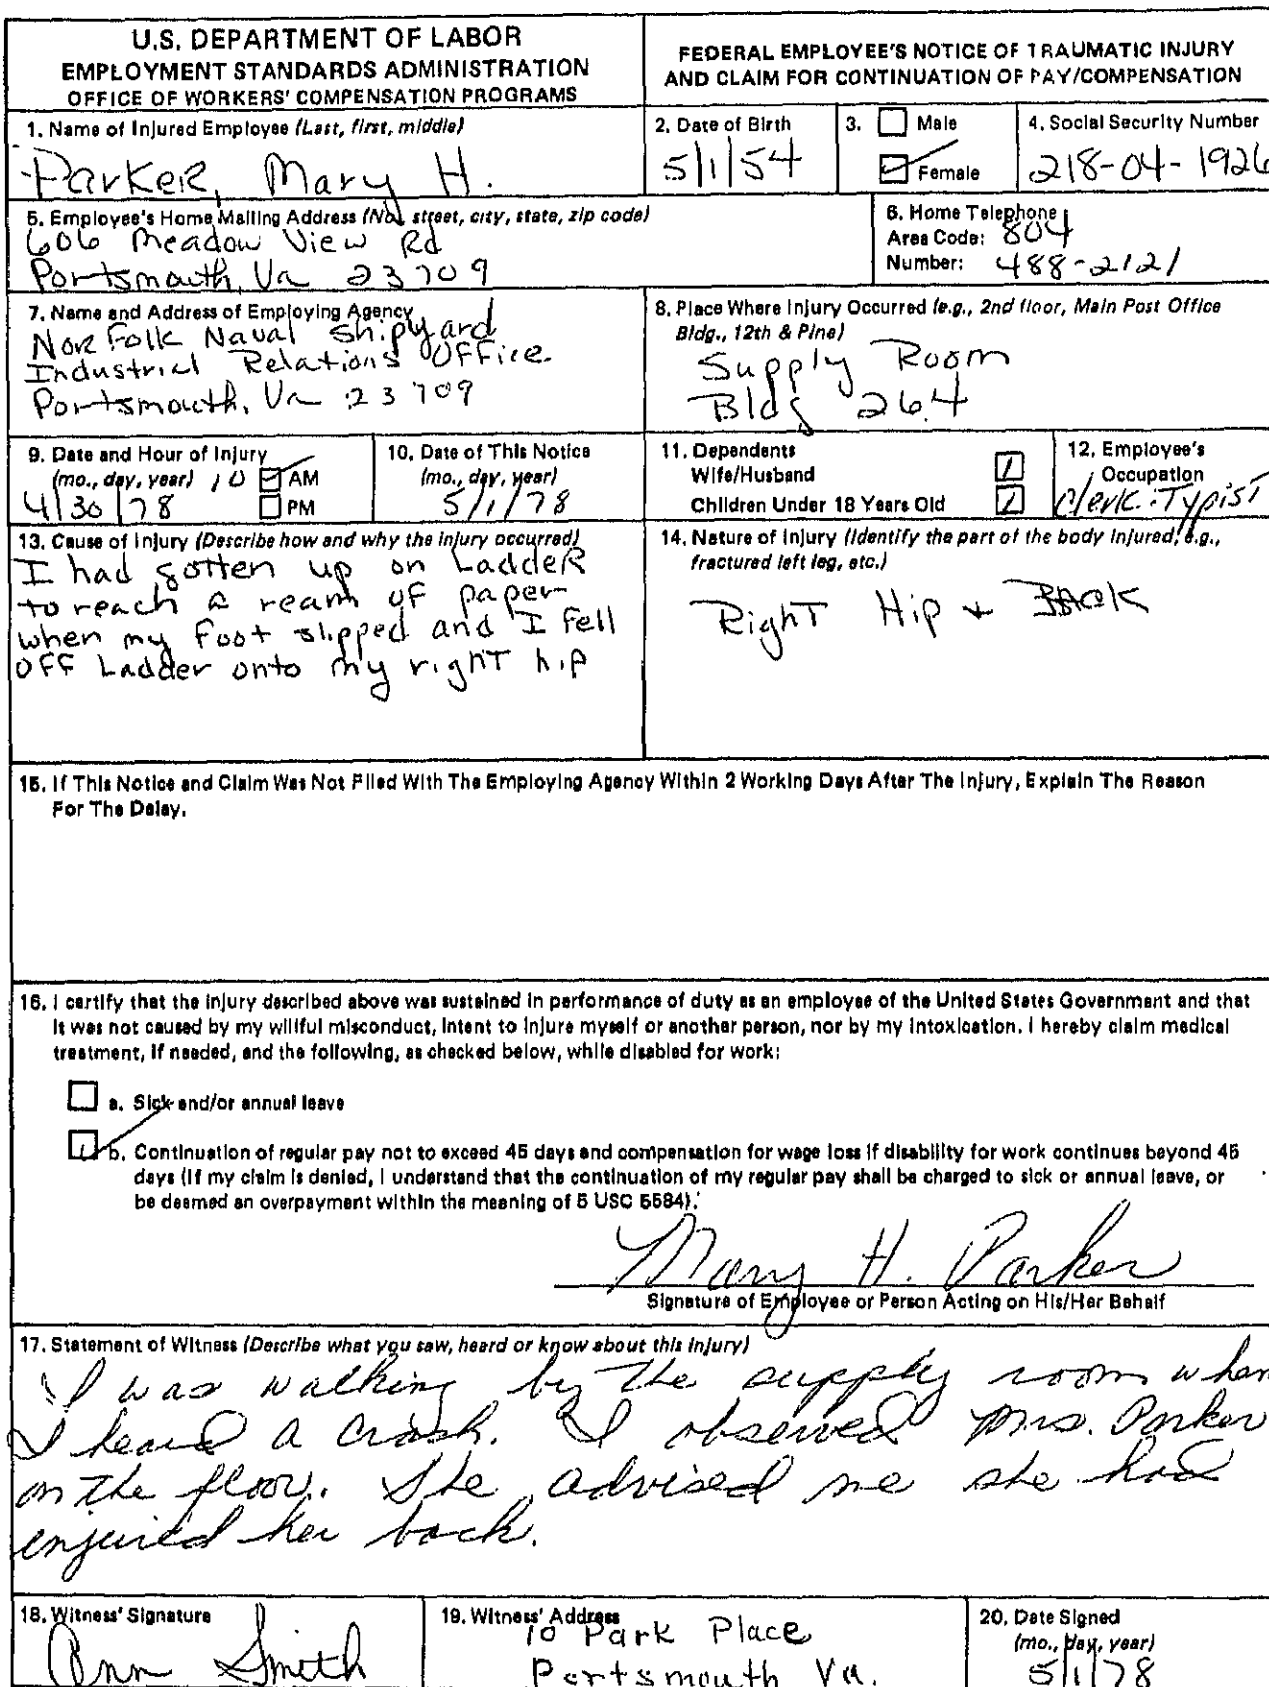 U.S. DEPARTMENT OF LABOR
EMPLOYMENT STANDARDS ADMINISTRATION
OFFICE OF WORKERS' COMPENSATION PROGRAMS
FEDERAL EMPLOYEE'S NOTICE OF TRAUMATIC INJURY
AND CLAIM FOR CONTINUATION OF PAY/COMPENSATION
1. Name of Injured Employee (Last, first, middle)
Parker, Mary H.
2. Date of Birth
5/1/54
3. Male
Female
4. Social Security Number
218-04-1926
5. Employee's Home Mailing Address (No. street, city, state, zip code)
606 Meadow View Rd
Portsmouth, Va 23709
6. Home Telephone
Area Code: 804
Number: 488-2121
7. Name and Address of Employing Agency
Norfolk Naval Shipyard
Industrial Relations Office
Portsmouth, Va 23709
8. Place Where Injury Occurred (e.g., 2nd floor, Main Post Office
Bldg., 12th & Pine)
Supply Room
Bldg 264
9. Date and Hour of Injury
(mo., day, year) 10 AM
4/30/78 PM
10. Date of This Notice
(mo., day, year)
5/1/78
11. Dependents
Wife/Husband 1
Children Under 18 Years Old 1
12. Employee's
Occupation
Clerk-Typist
13. Cause of Injury (Describe how and why the injury occurred)
I had gotten up on Ladder
to reach a ream of paper
when my foot slipped and I fell
off Ladder onto my right hip
14. Nature of Injury (Identify the part of the body injured, e.g.,
fractured left leg, etc.)
Right Hip + Back
15. If This Notice and Claim Was Not Filed With The Employing Agency Within 2 Working Days After The Injury, Explain The Reason
For The Delay.
16. I certify that the injury described above was sustained in performance of duty as an employee of the United States Government and that
it was not caused by my willful misconduct, intent to injure myself or another person, nor by my intoxication. I hereby claim medical
treatment, if needed, and the following, as checked below, while disabled for work:
a. Sick and/or annual leave
b. Continuation of regular pay not to exceed 45 days and compensation for wage loss if disability for work continues beyond 45
days (If my claim is denied, I understand that the continuation of my regular pay shall be charged to sick or annual leave, or
be deemed an overpayment within the meaning of 5 USC 5584).
Mary H. Parker
Signature of Employee or Person Acting on His/Her Behalf
17. Statement of Witness (Describe what you saw, heard or know about this injury)
I was walking by the supply room when
I heard a crash. I observed Mrs. Parker
on the floor. She advised me she had
injured her back.
18. Witness' Signature
Ann Smith
19. Witness' Address
10 Park Place
Portsmouth Va.
20. Date Signed
(mo., day, year)
5/1/78